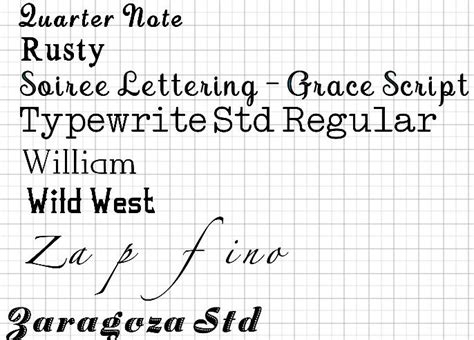 Quarter Note
Rusty
Soiree Lettering - Grace Script
Typewrite Std Regular
William
Wild West
Zapfino
Zaragoza Std